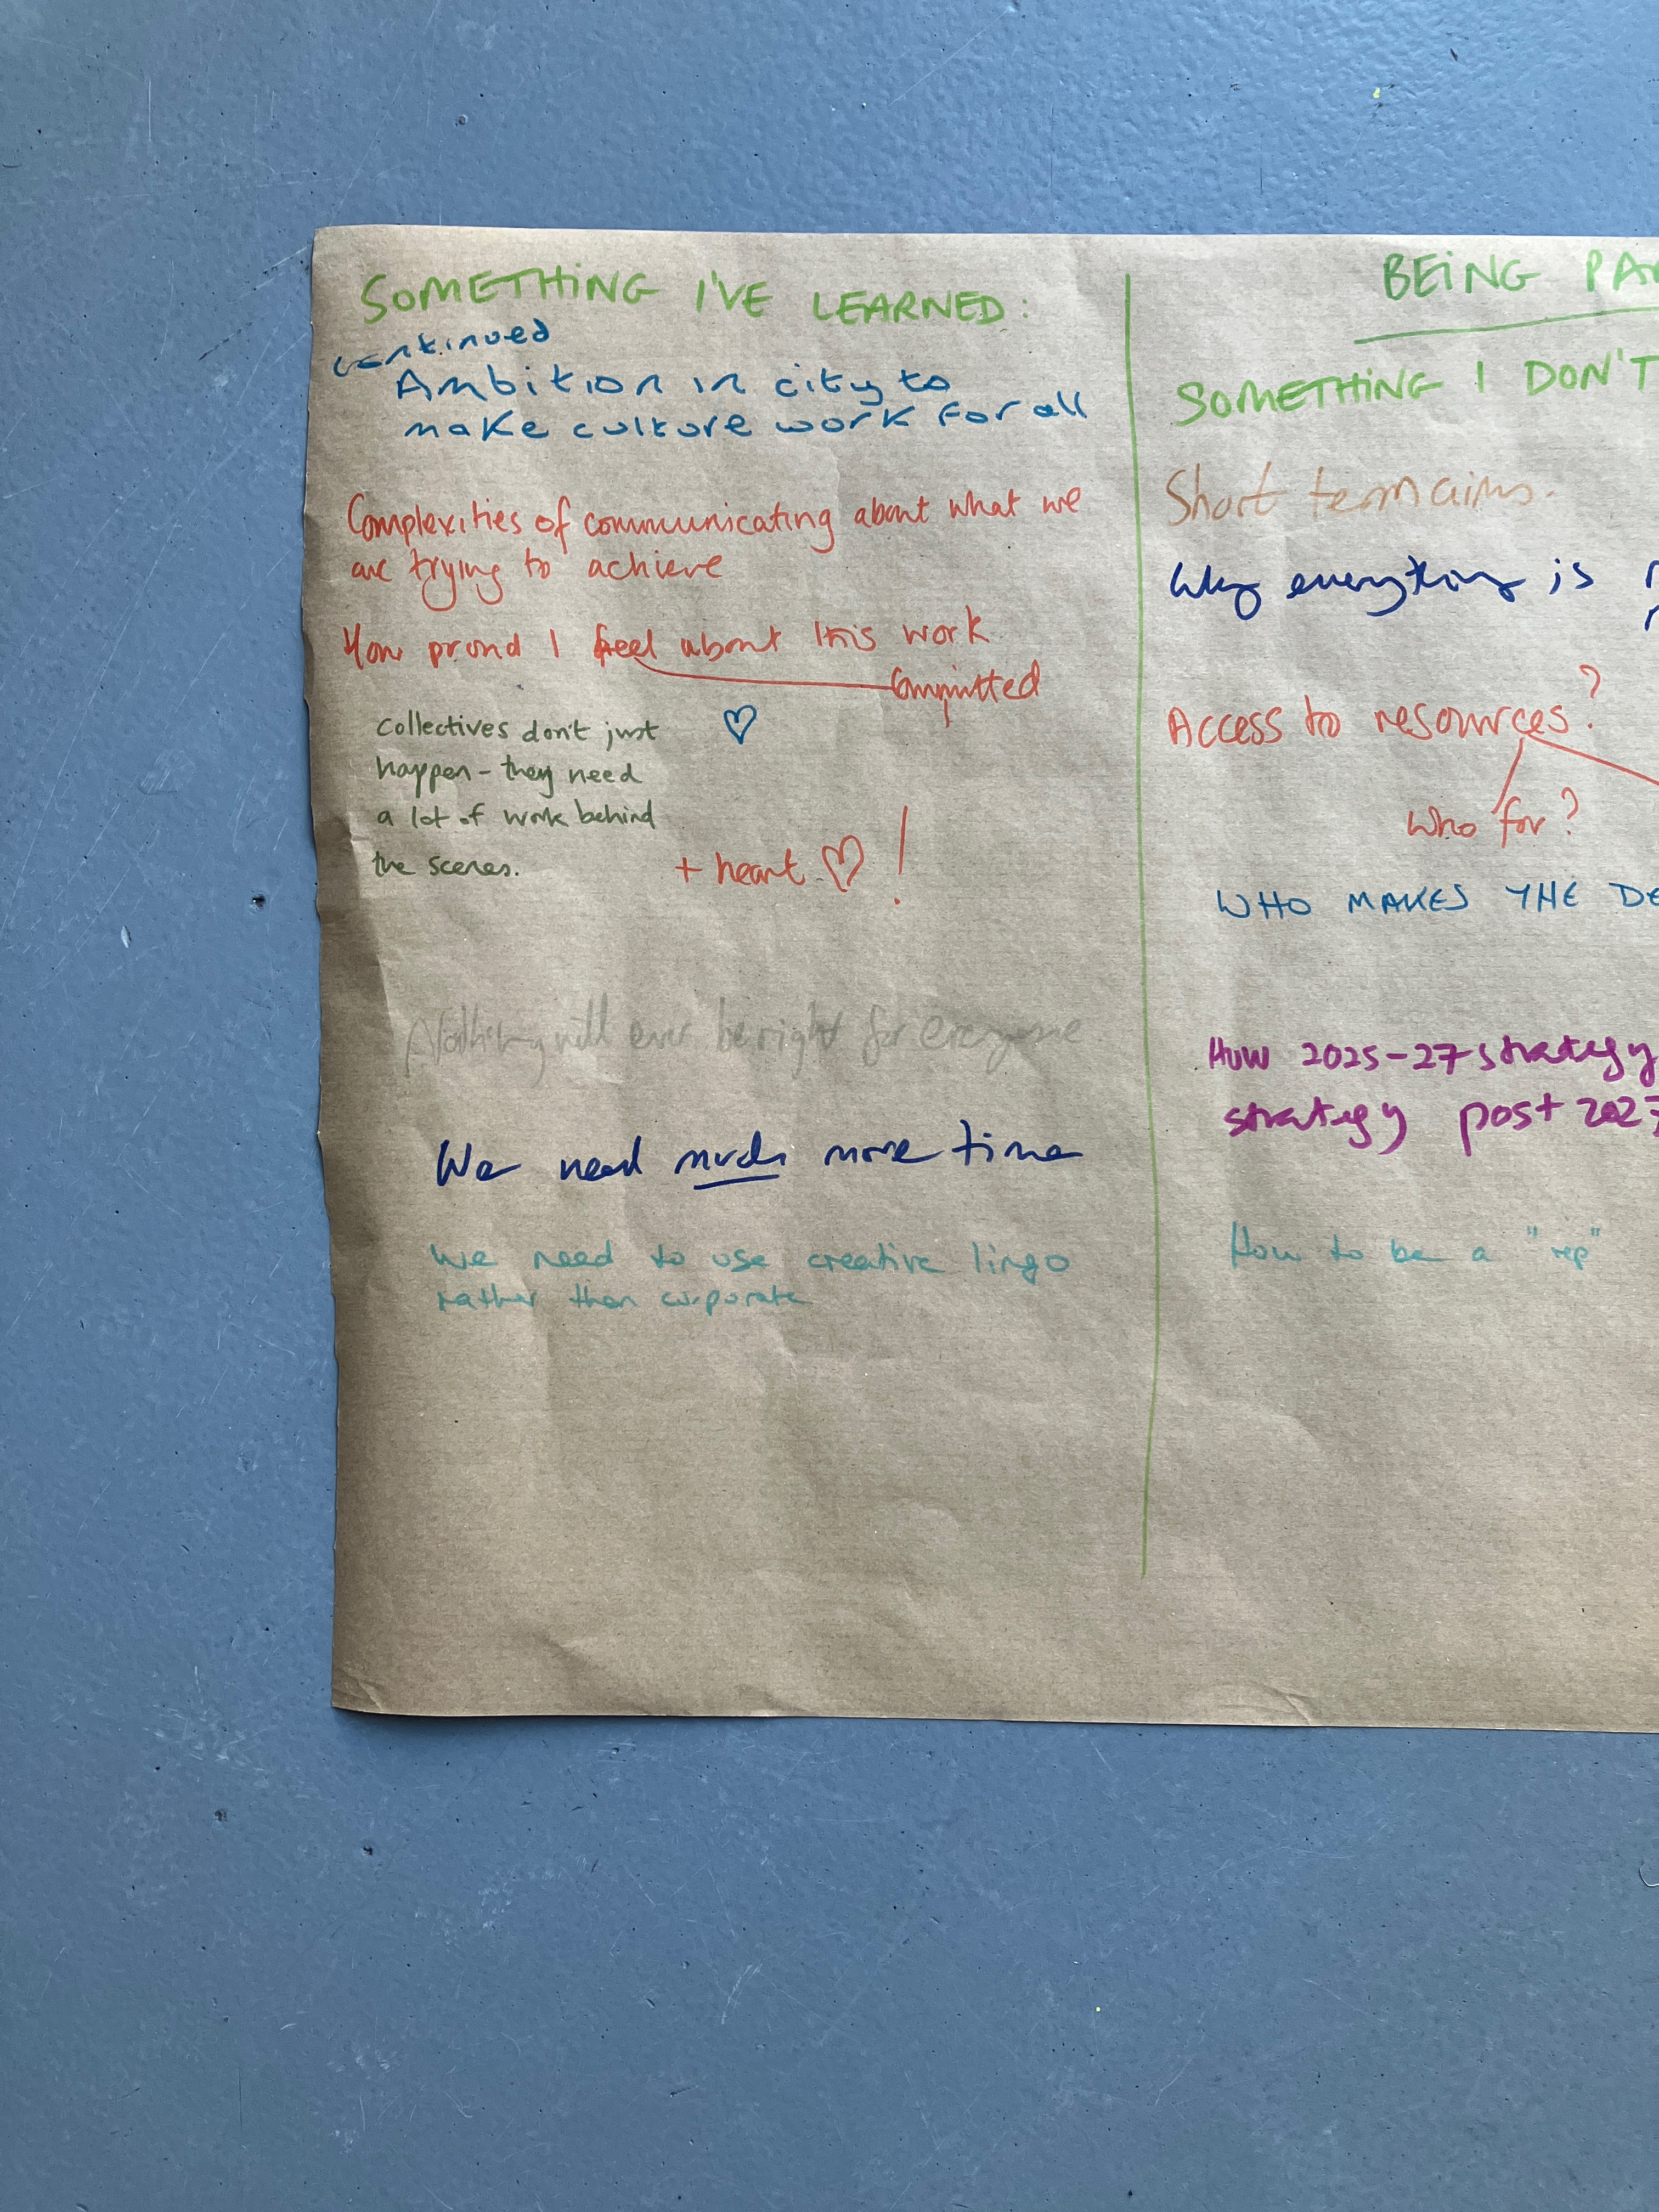 SOMETHING I'VE LEARNED:
continued
Ambition in city to
make culture work for all
Complexities of communicating about what we
are trying to achieve
How proud I feel about this work
Committed
Collectives don't just
happen - they need
a lot of work behind
the scenes.
+ heart ♡ !
Nothing will ever be right for everyone
We need much more time
We need to use creative lingo
rather than corporate
BEING PA
SOMETHING I DON'T
Short term aims.
Why everything is
Access to resources?
?
Who for?
WHO MAKES THE DE
How 2025-27 strategy
strategy post 2027
How to be a "rep"